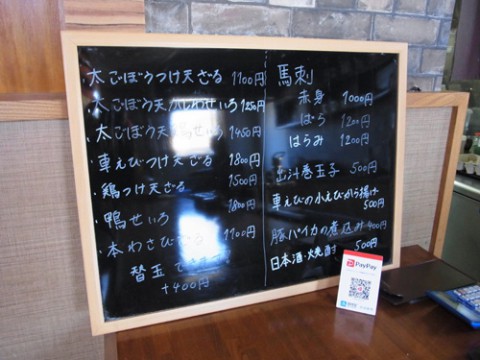 ・太ごぼうつけ天ざる 1100円
太ごぼう天 せいろ 1250円
・太ごぼう天 せいろ 1450円
・車えびつけ天ざる 1800円
・鶏つけ天ざる 1500円
・鴨せいろ 1800円
・本わさびざる 1100円
替玉
+400円
馬刺
赤身 1000円
ばら 1200円
はらみ 1200円
出汁巻玉子 500円
車えびの小えびから揚げ
500円
豚バイカの煮込み 400円
日本酒・焼酎 500円
PayPay